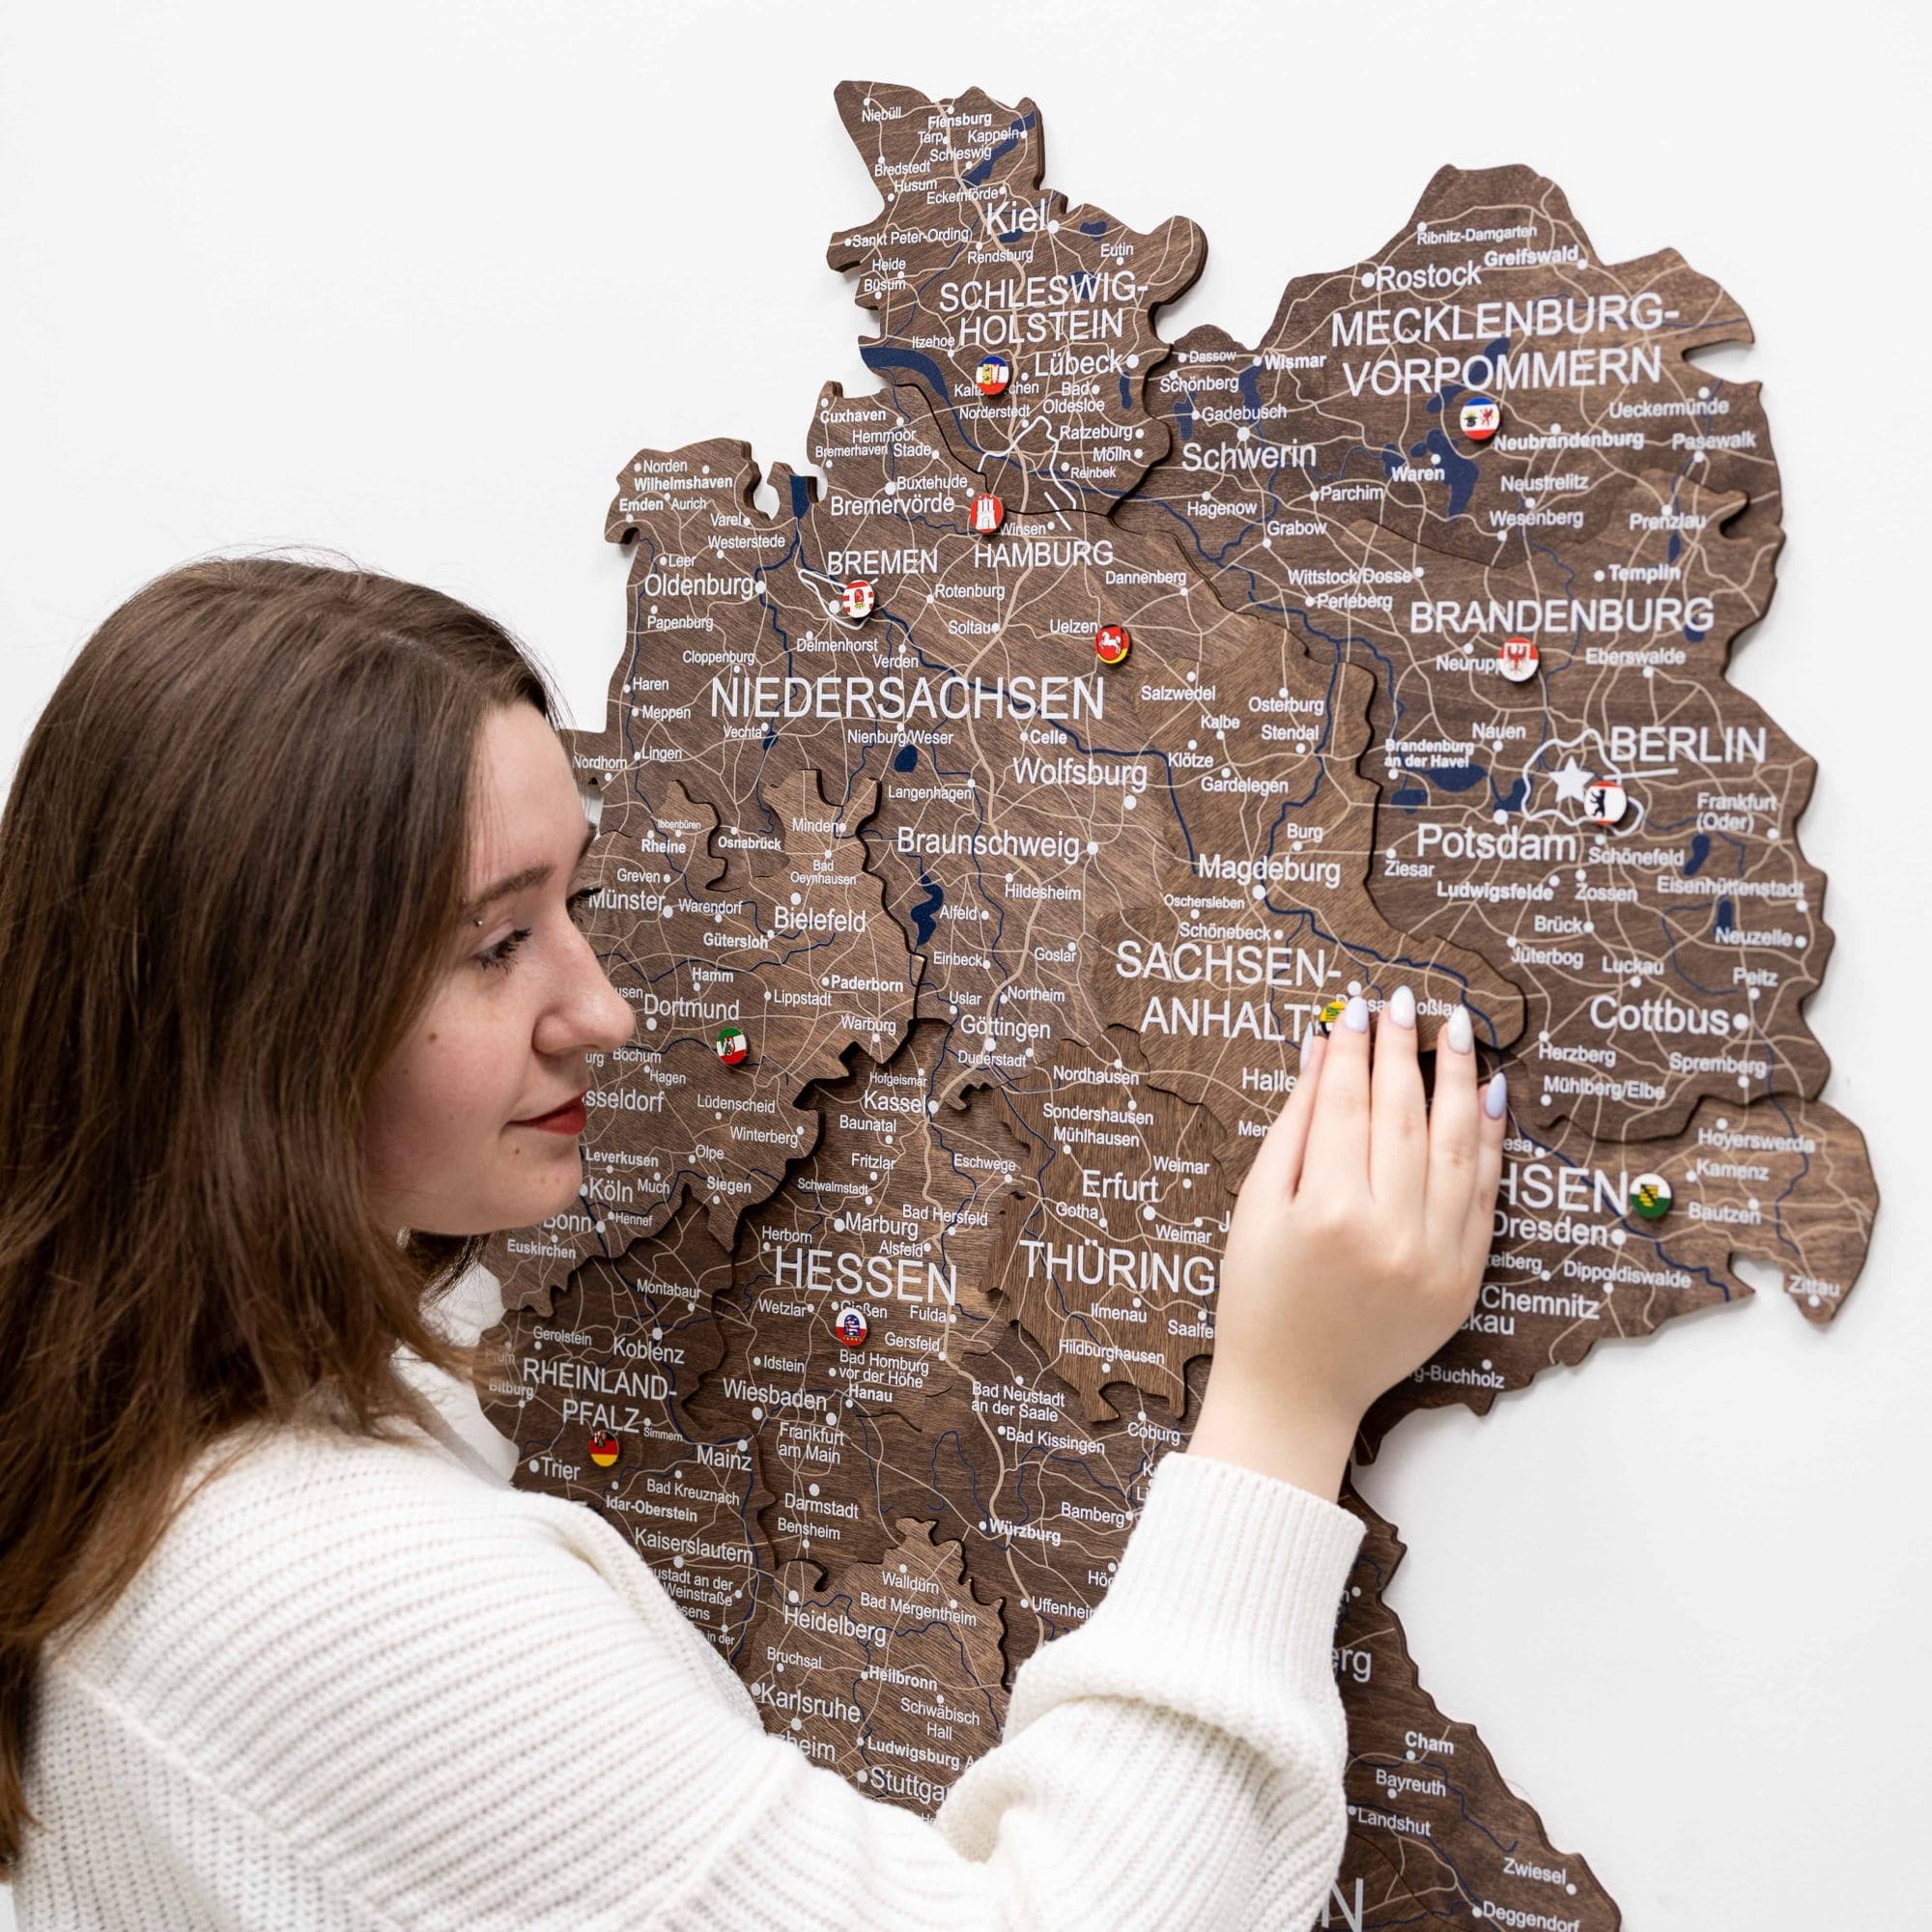 Niebüll
Flensburg
Tarp
Kappeln
Schleswig
Bredstedt
Husum
Eckernförde
Kiel
Sankt Peter-Ording
Rendsburg
Eutin
Heide
Büsum
SCHLESWIG-
HOLSTEIN
Itzehoe
Lübeck
Bad
Oldesloe
Norderstedt
Ratzeburg
Mölln
Reinbek
Ribnitz-Damgarten
Greifswald
Rostock
MECKLENBURG-
VORPOMMERN
Dassow
Wismar
Schönberg
Gadebusch
Schwerin
Ueckermünde
Neubrandenburg
Pasewalk
Waren
Neustrelitz
Parchim
Hagenow
Wesenberg
Prenzlau
Grabow
Cuxhaven
Hemmoor
Bremerhaven
Stade
Norden
Wilhelmshaven
Emden
Aurich
Buxtehude
Bremervörde
Varel
Winsen
Westerstede
Leer
BREMEN
HAMBURG
Oldenburg
Dannenberg
Rotenburg
Papenburg
Soltau
Uelzen
Delmenhorst
Cloppenburg
Verden
Haren
NIEDERSACHSEN
Meppen
Vechta
Nienburg/Weser
Celle
Lingen
Nordhorn
Wolfsburg
Langenhagen
Wittstock/Dosse
Templin
Perleberg
BRANDENBURG
Eberswalde
Salzwedel
Osterburg
Kalbe
Stendal
Nauen
Brandenburg
an der Havel
BERLIN
Klötze
Gardelegen
Frankfurt
(Oder)
Ibbenbüren
Minden
Rheine
Osnabrück
Braunschweig
Burg
Potsdam
Schönefeld
Bad
Oeynhausen
Magdeburg
Ziesar
Greven
Hildesheim
Ludwigsfelde
Zossen
Eisenhüttenstadt
Münster
Warendorf
Bielefeld
Alfeld
Oschersleben
Schönebeck
Brück
Neuzelle
Gütersloh
Jüterbog
Luckau
Peitz
Einbeck
Goslar
SACHSEN-
ANHALT
Hamm
Paderborn
Lippstadt
Dortmund
Uslar
Northeim
Cottbus
Warburg
Göttingen
Bochum
Duderstadt
Herzberg
Spremberg
Hagen
Hofgeismar
Nordhausen
Halle
Mühlberg/Elbe
Lüdenscheid
Kassel
Sondershausen
Winterberg
Baunatal
Mühlhausen
Hoyerswerda
Leverkusen
Olpe
Fritzlar
Eschwege
Weimar
Kamenz
Köln
Much
Siegen
Schwalmstadt
Erfurt
Bautzen
Bonn
Hennef
Marburg
Bad Hersfeld
Gotha
Weimar
Dresden
Euskirchen
Herborn
Alsfeld
HESSEN
Dippoldiswalde
Montabaur
Wetzlar
Gießen
Fulda
Ilmenau
Chemnitz
Zittau
Gerolstein
Koblenz
Gersfeld
Hildburghausen
RHEINLAND-
PFALZ
Bitburg
Idstein
Bad Homburg
vor der Höhe
Wiesbaden
Hanau
Bad Neustadt
an der Saale
Simmern
Frankfurt
am Main
Bad Kissingen
Coburg
Trier
Mainz
Bad Kreuznach
Darmstadt
Idar-Oberstein
Bensheim
Würzburg
Bamberg
Kaiserslautern
Walldürn
Bad Mergentheim
Heidelberg
Bruchsal
Heilbronn
Karlsruhe
Schwäbisch
Hall
Ludwigsburg
Cham
Bayreuth
Landshut
Zwiesel
Deggendorf